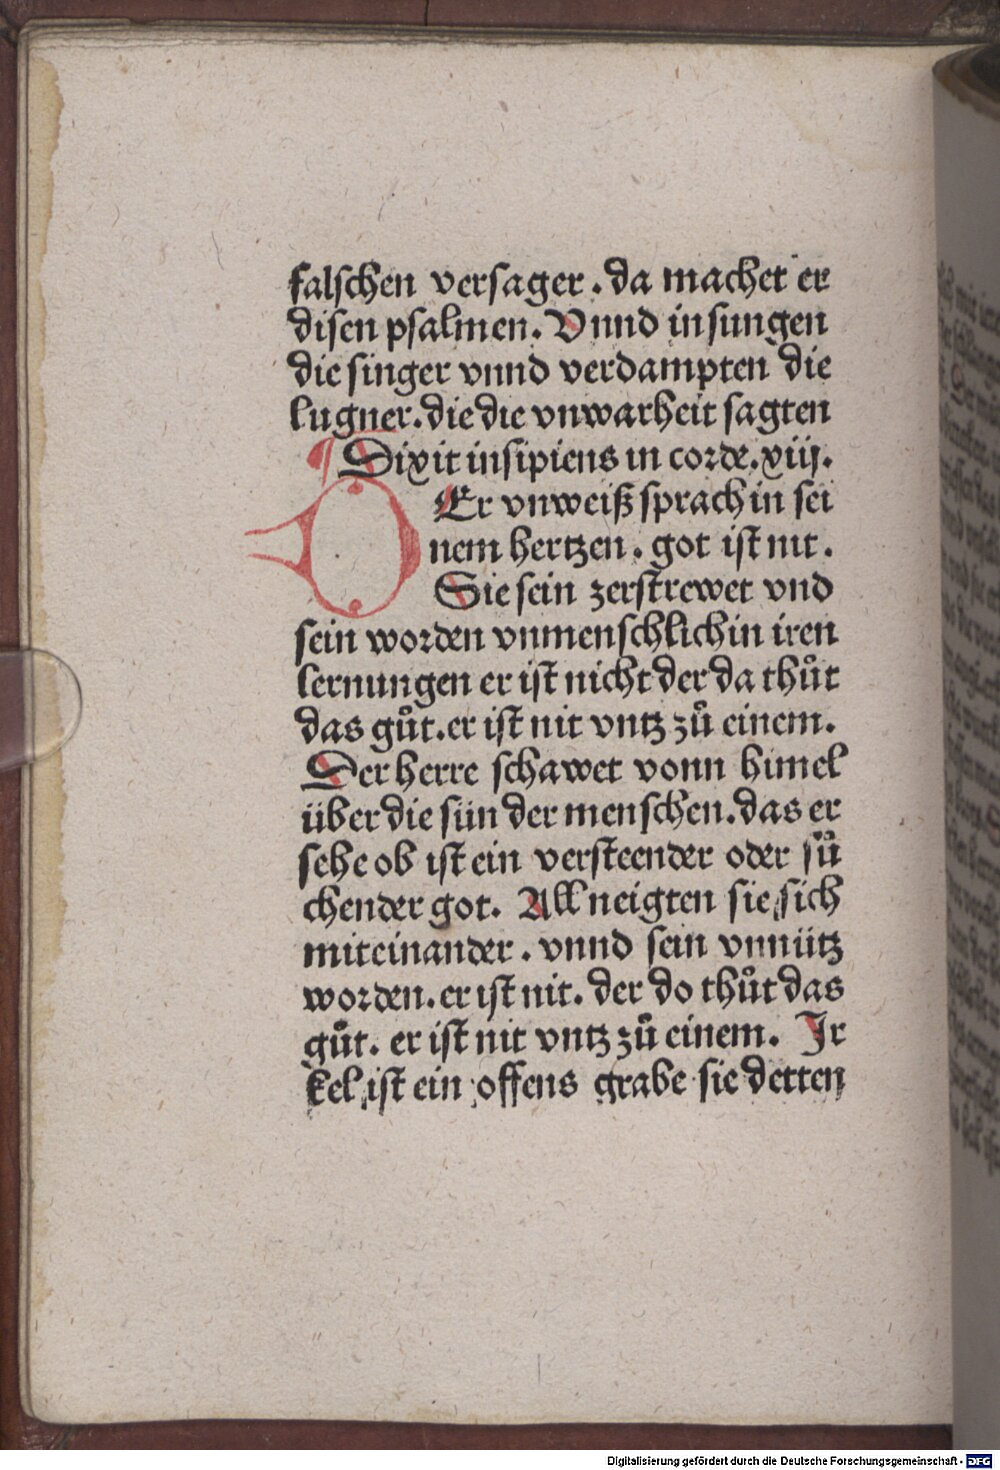 falschen versager. da machet er
disen psalmen. Vnnd in sungen
die singer vnnd verdampten die
lugner. die die vnwarheit sagten
¶ Dixit insipiens in corde. xiij.
DEr vnweiß sprach in sei
nem hertzen. got ist nit.
Sie sein zerstrewet vnd
sein worden vnmenschlich in iren
lernungen er ist nicht der da thůt
das gůt. er ist nit vntz zů einem.
Der herre schawet vonn himel
über die sün der menschen. das er
sehe ob ist ein versteender oder sů
chender got. All neigten sie sich
miteinander. vnnd sein vnnütz
worden. er ist nit. der do thůt das
gůt. er ist nit vntz zů einem. Ir
kel ist ein offens grabe sie detten
Digitalisierung gefördert durch die Deutsche Forschungsgemeinschaft - DFG